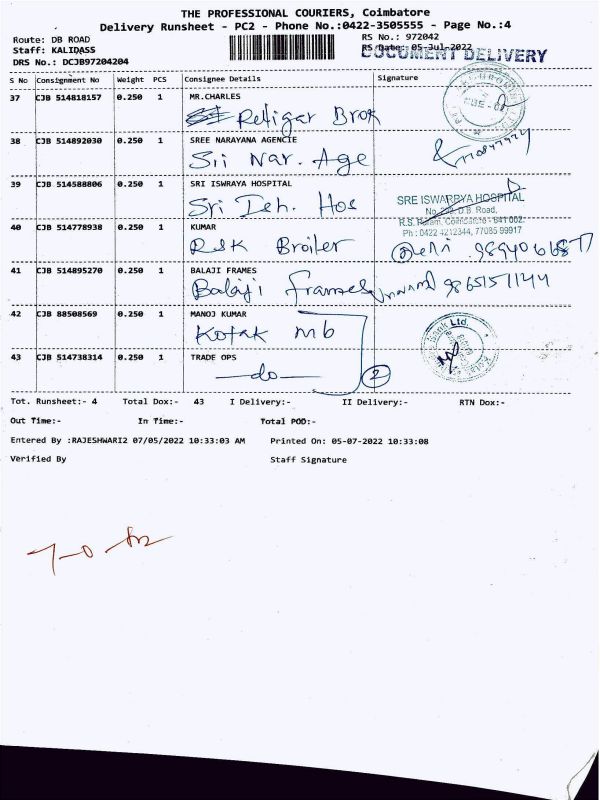 THE PROFESSIONAL COURIERS, Coimbatore
Delivery Runsheet - PC2 - Phone No.:0422-3505555 - Page No.:4
Route: DB ROAD RS No.: 972042
Staff: KALIDASS RS Date: 05-Jul-2022
DOCUMENT DELIVERY
DRS No.: DCJB97204204
S No Consignment No Weight PCS Consignee Details Signature
37 CJB 514818157 0.250 1 MR.CHARLES
Religar Brok
38 CJB 514892030 0.250 1 SREE NARAYANA AGENCIE
Sri Nar. Age
39 CJB 514588806 0.250 1 SRI ISWRAYA HOSPITAL
Sri Ish. Hos
SRE ISWARRYA HOSPITAL
D.B. Road,
R.S. Puram, Coimbatore - 641 002.
Ph : 0422 4212344, 77085 99917
40 CJB 514778938 0.250 1 KUMAR
RSK Broiler
41 CJB 514895270 0.250 1 BALAJI FRAMES
Balaji frames 9865157144
42 CJB 88508569 0.250 1 MANOJ KUMAR
Kotak mb
Bank Ltd.
43 CJB 514738314 0.250 1 TRADE OPS
—do— 2
Tot. Runsheet:- 4 Total Dox:- 43 I Delivery:- II Delivery:- RTN Dox:-
Out Time:- In Time:- Total POD:-
Entered By :RAJESHWARI2 07/05/2022 10:33:03 AM Printed On: 05-07-2022 10:33:08
Verified By Staff Signature